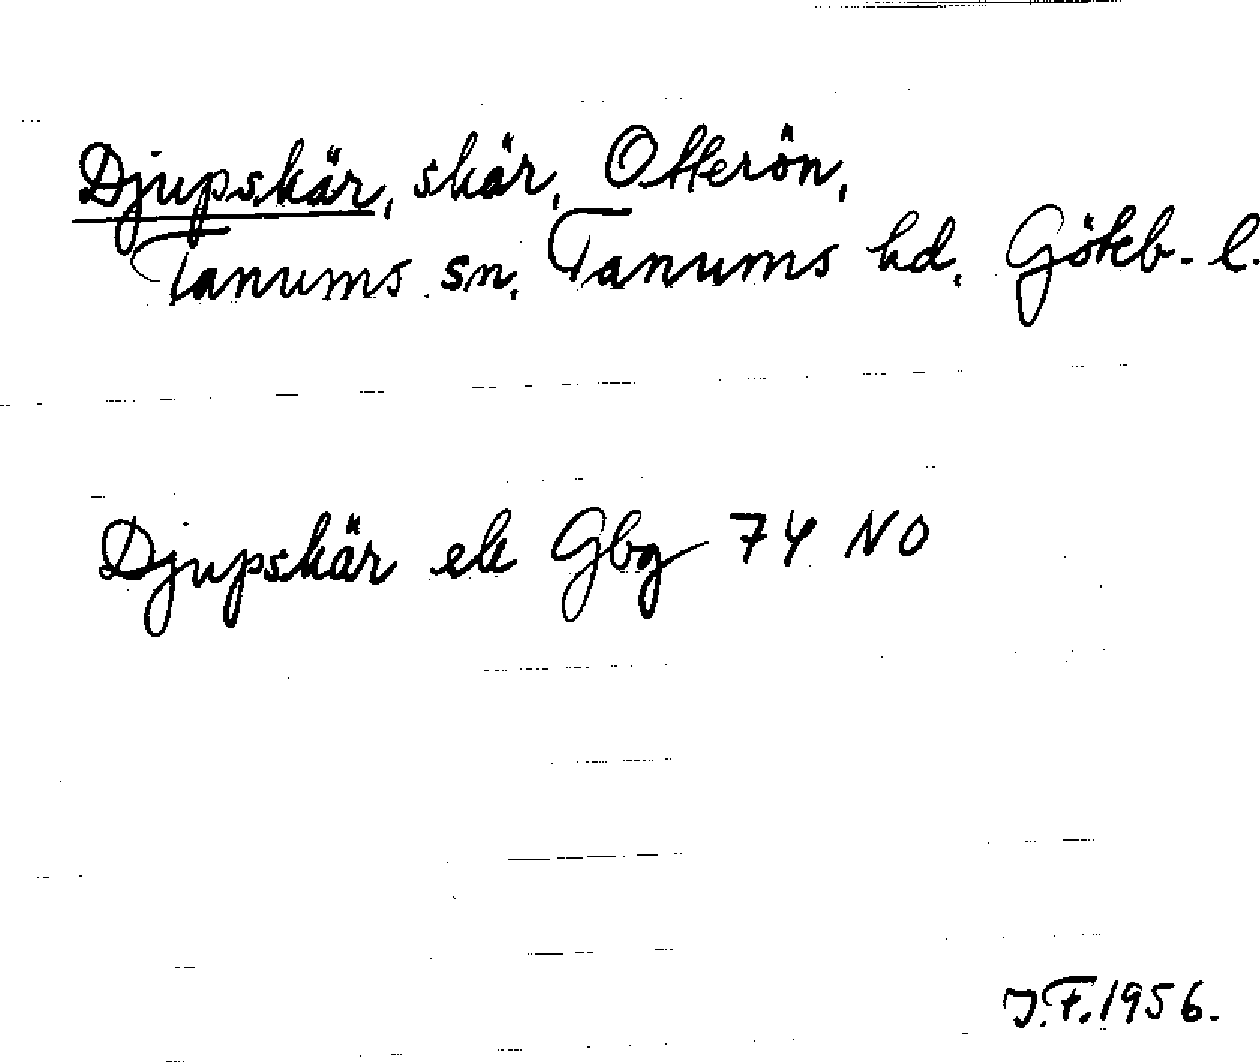 Djupskär, skär, Otterön,
Tanums sn, Tanums hd, Göteb. l.
Djupskär ek Gbg 74 NO
J.F. 1956.